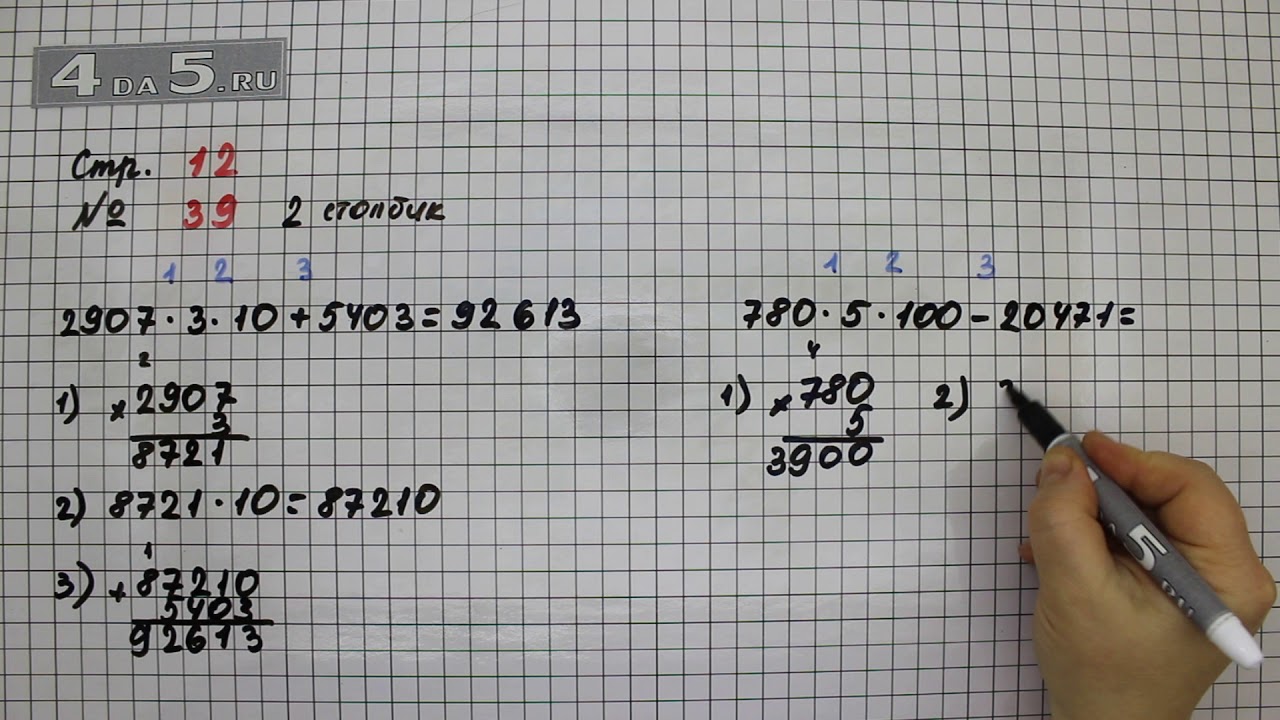 4 DA 5.RU
Стр. 12
№ 39 2 столбик
1 2 3
2907·3·10+5403=92613
2
1) × 2907
3
8721
2) 8721·10=87210
3) 1
+ 87210
5403
92613
1 2 3
780·5·100-20471=
4
1) × 780
5
3900
2)
5